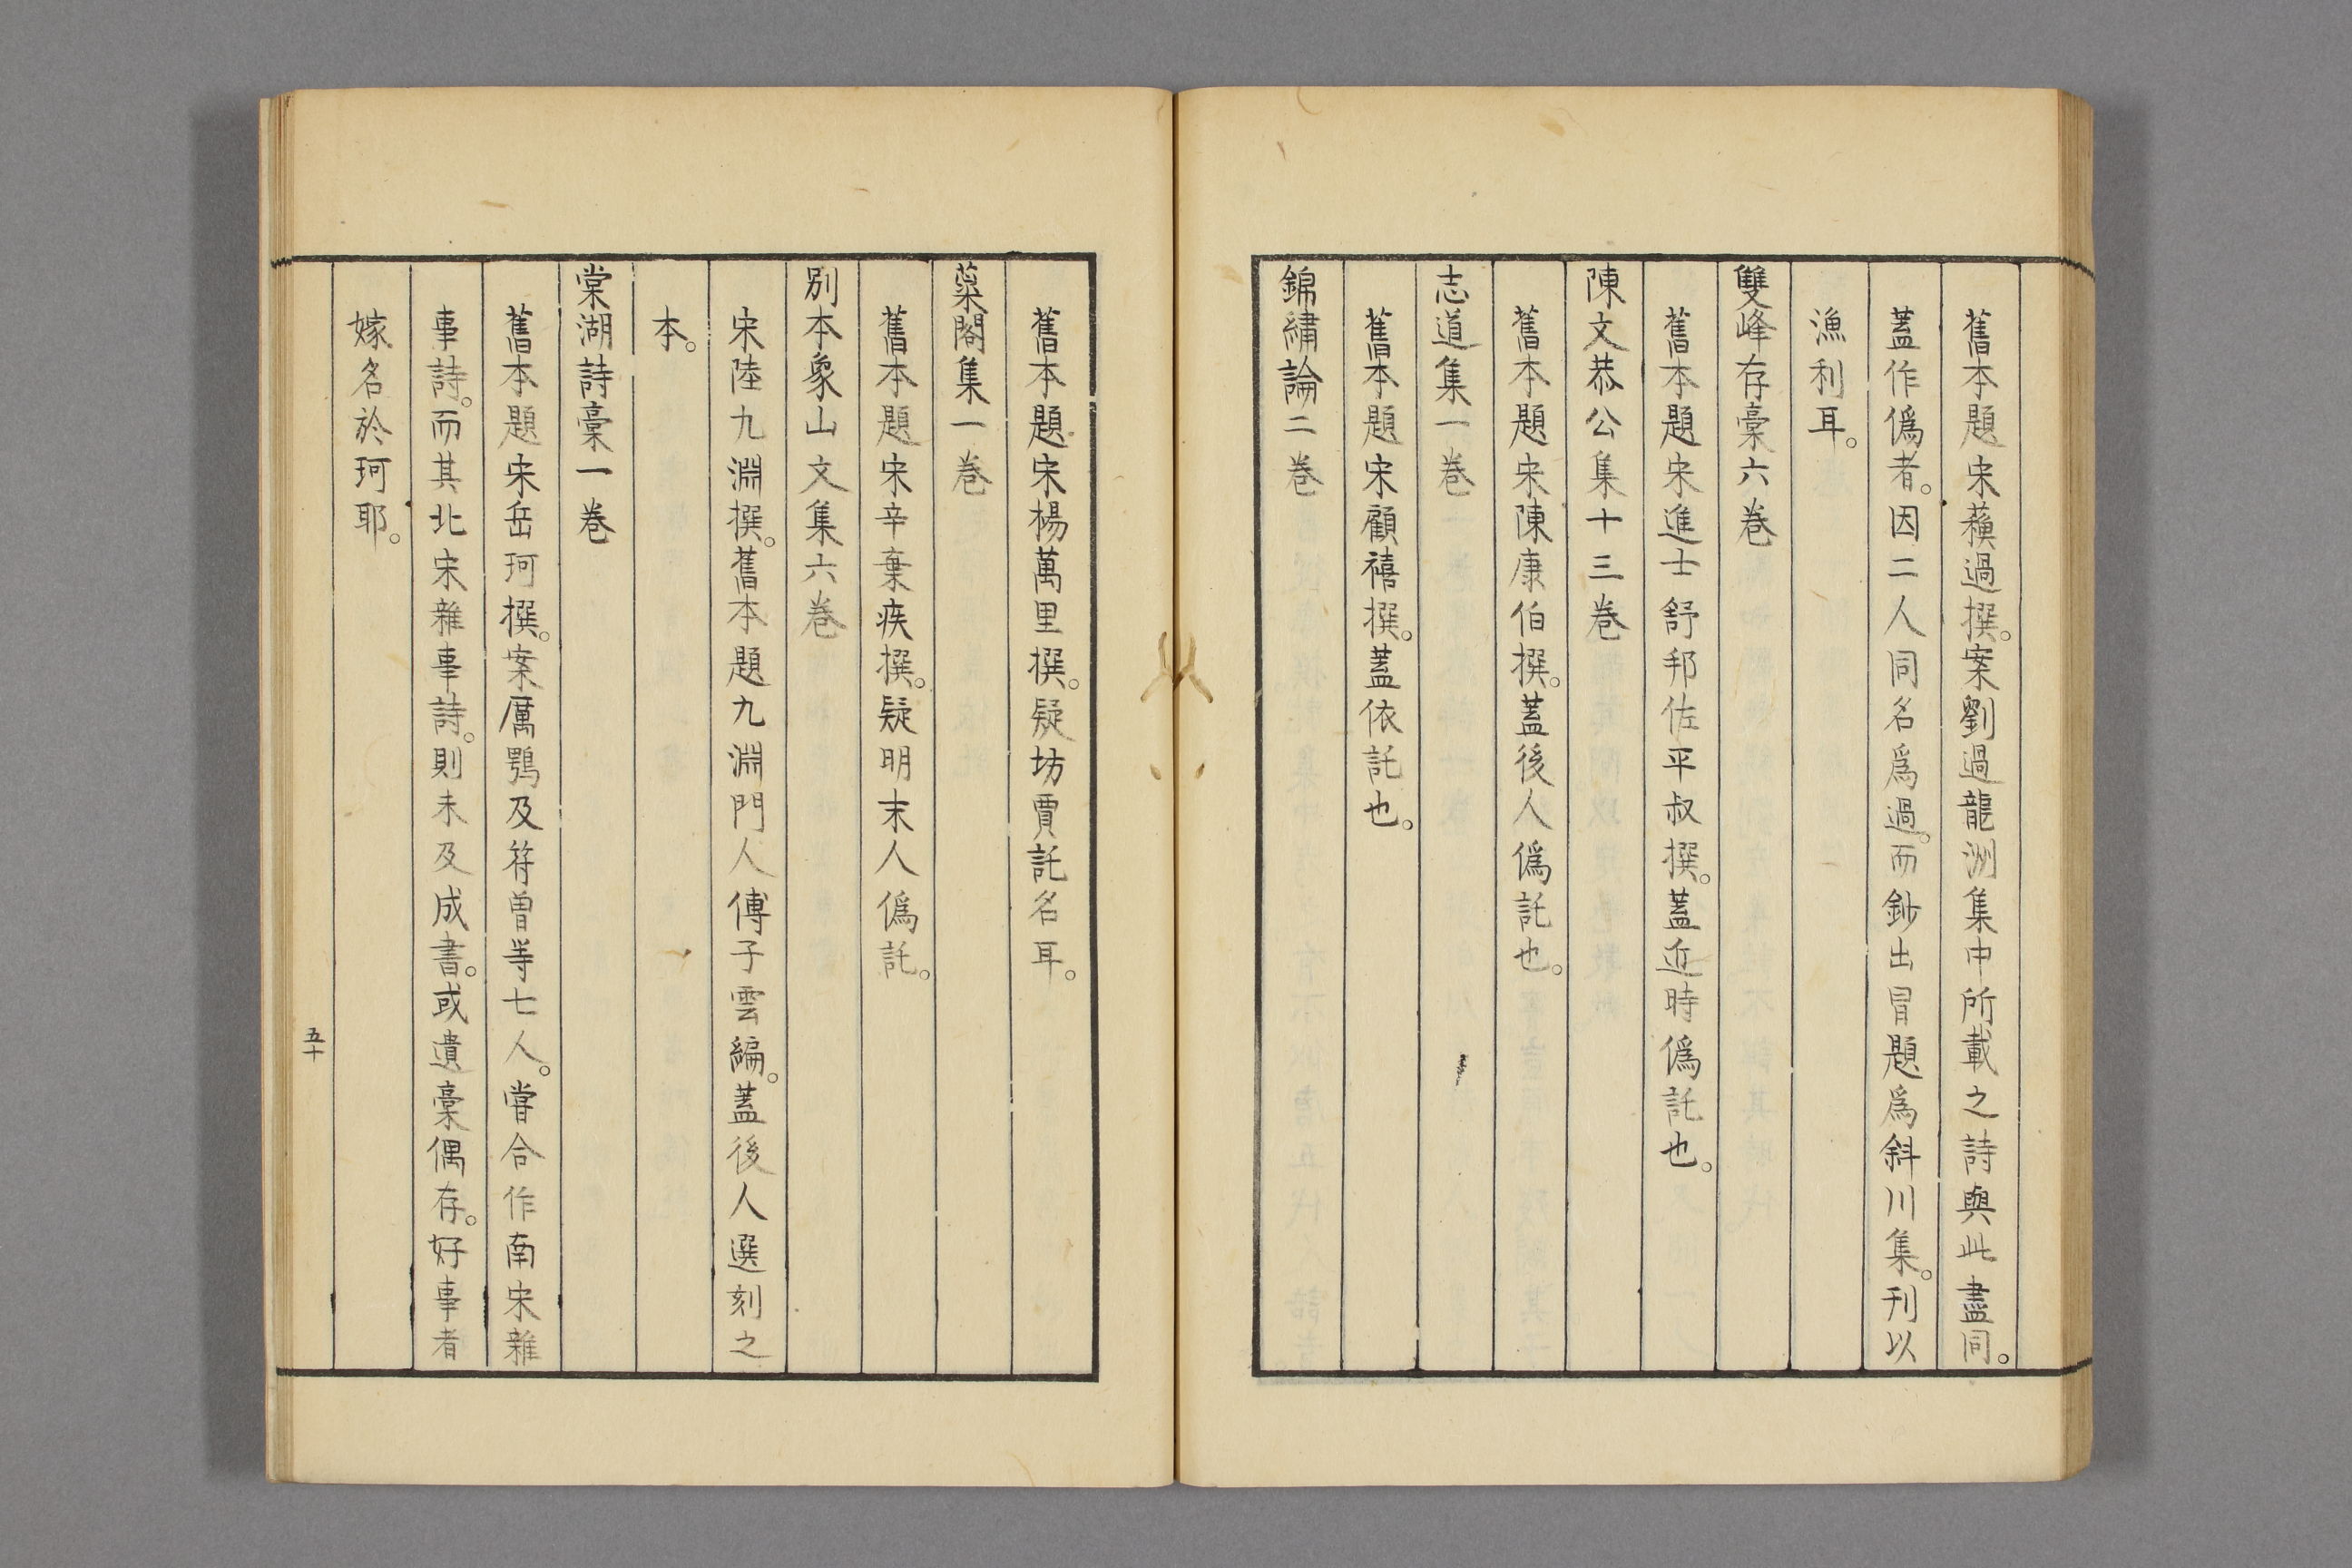 舊本題宋蘓過撰。案劉過龍洲集中所載之詩與此盡同。
蓋作僞者。因二人同名爲過。而鈔出冒題爲斜川集。刊以
漁利耳。
雙峰存稾六卷
舊本題宋進士舒邦佐平叔撰。蓋近時僞託也。
陳文恭公集十三卷
舊本題宋陳康伯撰。蓋後人僞託也。
志道集一卷
舊本題宋顧禧撰。蓋依託也。
錦繡論二卷
舊本題宋楊萬里撰。疑坊賈託名耳。
蘂閣集一卷
舊本題宋辛棄疾撰。疑明末人僞託。
別本象山文集六卷
宋陸九淵撰。舊本題九淵門人傅子雲編。蓋後人選刻之
本。
棠湖詩稾一卷
舊本題宋岳珂撰。案厲鶚及符曾等七人。嘗合作南宋雜
事詩。而其北宋雜事詩。則未及成書。或遺稾偶存。好事者
嫁名於珂耶。
五十